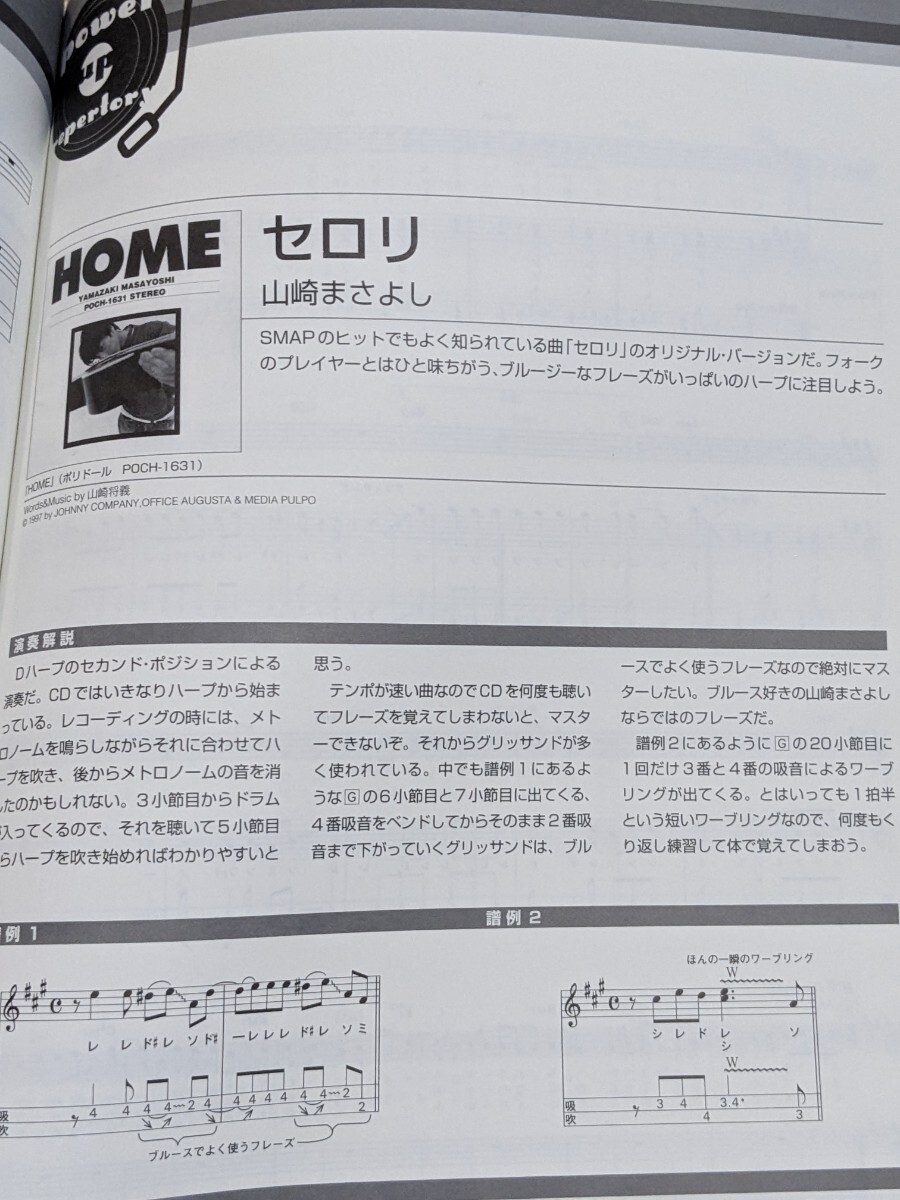 power
up
repertory
HOME
YAMAZAKI MASAYOSHI
POCH-1631 STEREO
セロリ
山崎まさよし
SMAPのヒットでもよく知られている曲「セロリ」のオリジナル・バージョンだ。フォーク
のプレイヤーとはひと味ちがう、ブルージーなフレーズがいっぱいのハープに注目しよう。
「HOME」(ポリドール POCH-1631)
Words&Music by 山崎将義
© 1997 by JOHNNY COMPANY,OFFICE AUGUSTA & MEDIA PULPO
演奏解説
Dハープのセカンド・ポジションによる
演奏だ。CDではいきなりハープから始ま
っている。レコーディングの時には、メト
ロノームを鳴らしながらそれに合わせてハ
ープを吹き、後からメトロノームの音を消
したのかもしれない。3小節目からドラム
が入ってくるので、それを聴いて5小節目
らハープを吹き始めればわかりやすいと
思う。
テンポが速い曲なのでCDを何度も聴い
てフレーズを覚えてしまわないと、マスタ
ーできないぞ。それからグリッサンドが多
く使われている。中でも譜例1にあるよ
うなGの6小節目と7小節目に出てくる、
4番吸音をベンドしてからそのまま2番吸
音まで下がっていくグリッサンドは、ブル
ースでよく使うフレーズなので絶対にマス
ターしたい。ブルース好きの山崎まさよし
ならではのフレーズだ。
譜例2にあるようにGの20小節目に
1回だけ3番と4番の吸音によるワーブ
リングが出てくる。とはいっても1拍半
という短いワーブリングなので、何度もく
り返し練習して体で覚えてしまおう。
例1
レ レ ド♯レ ソド♯ ーレレレ ド♯レ ソミ
4 4 4 4 2 4 4 4 4 4 4 4 2 2
吸
吹
ブルースでよく使うフレーズ
譜例2
ほんの一瞬のワーブリング
W
シ レ ド レ ソ
シ
W
3 4 4 3.4 3
吸
吹